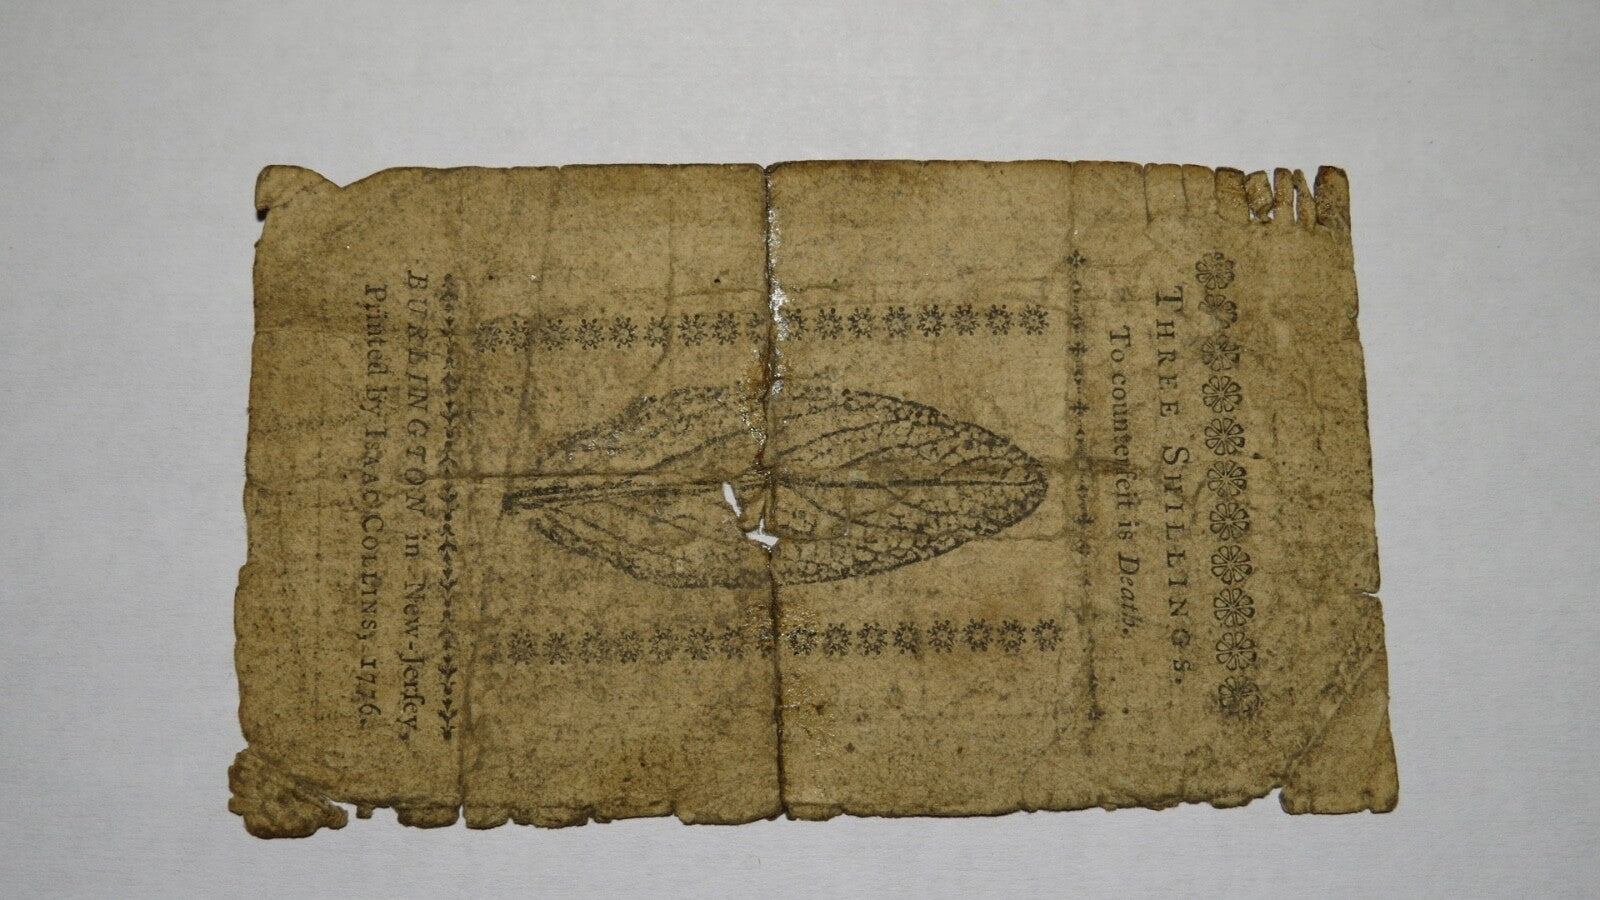 THREE SHILLINGS.
To counterfeit is Death.
BURLINGTON in New-Jerſey,
Printed by ISAAC COLLINS, 1776.